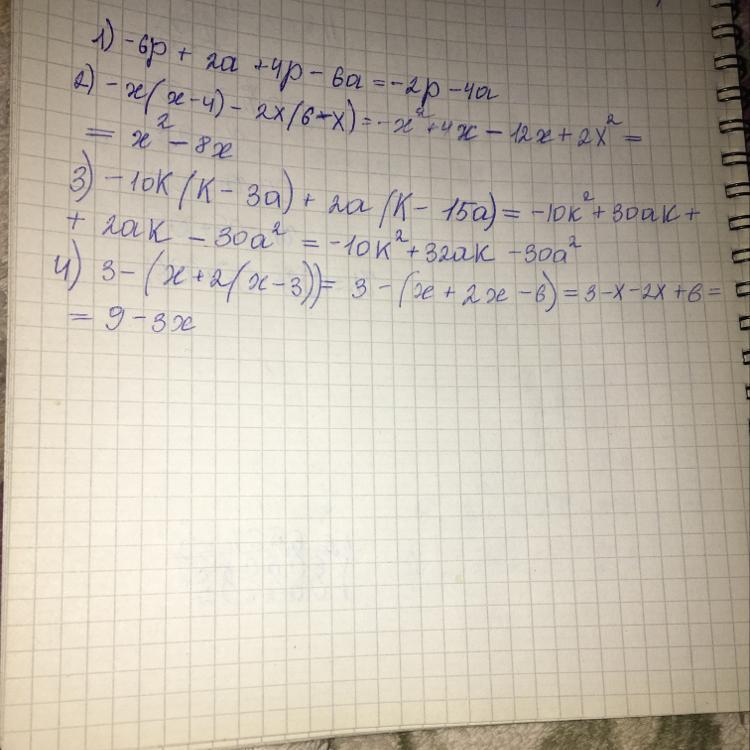 1) -6p + 2a + 4p - 6a = -2p - 4a
2) -x(x-4) - 2x(6-x) = -x² + 4x - 12x + 2x² =
= x² - 8x
3) -10k(k - 3a) + 2a(k - 15a) = -10k² + 30ak +
+ 2ak - 30a² = -10k² + 32ak - 30a²
4) 3 - (x + 2(x - 3)) = 3 - (x + 2x - 6) = 3 - x - 2x + 6 =
= 9 - 3x